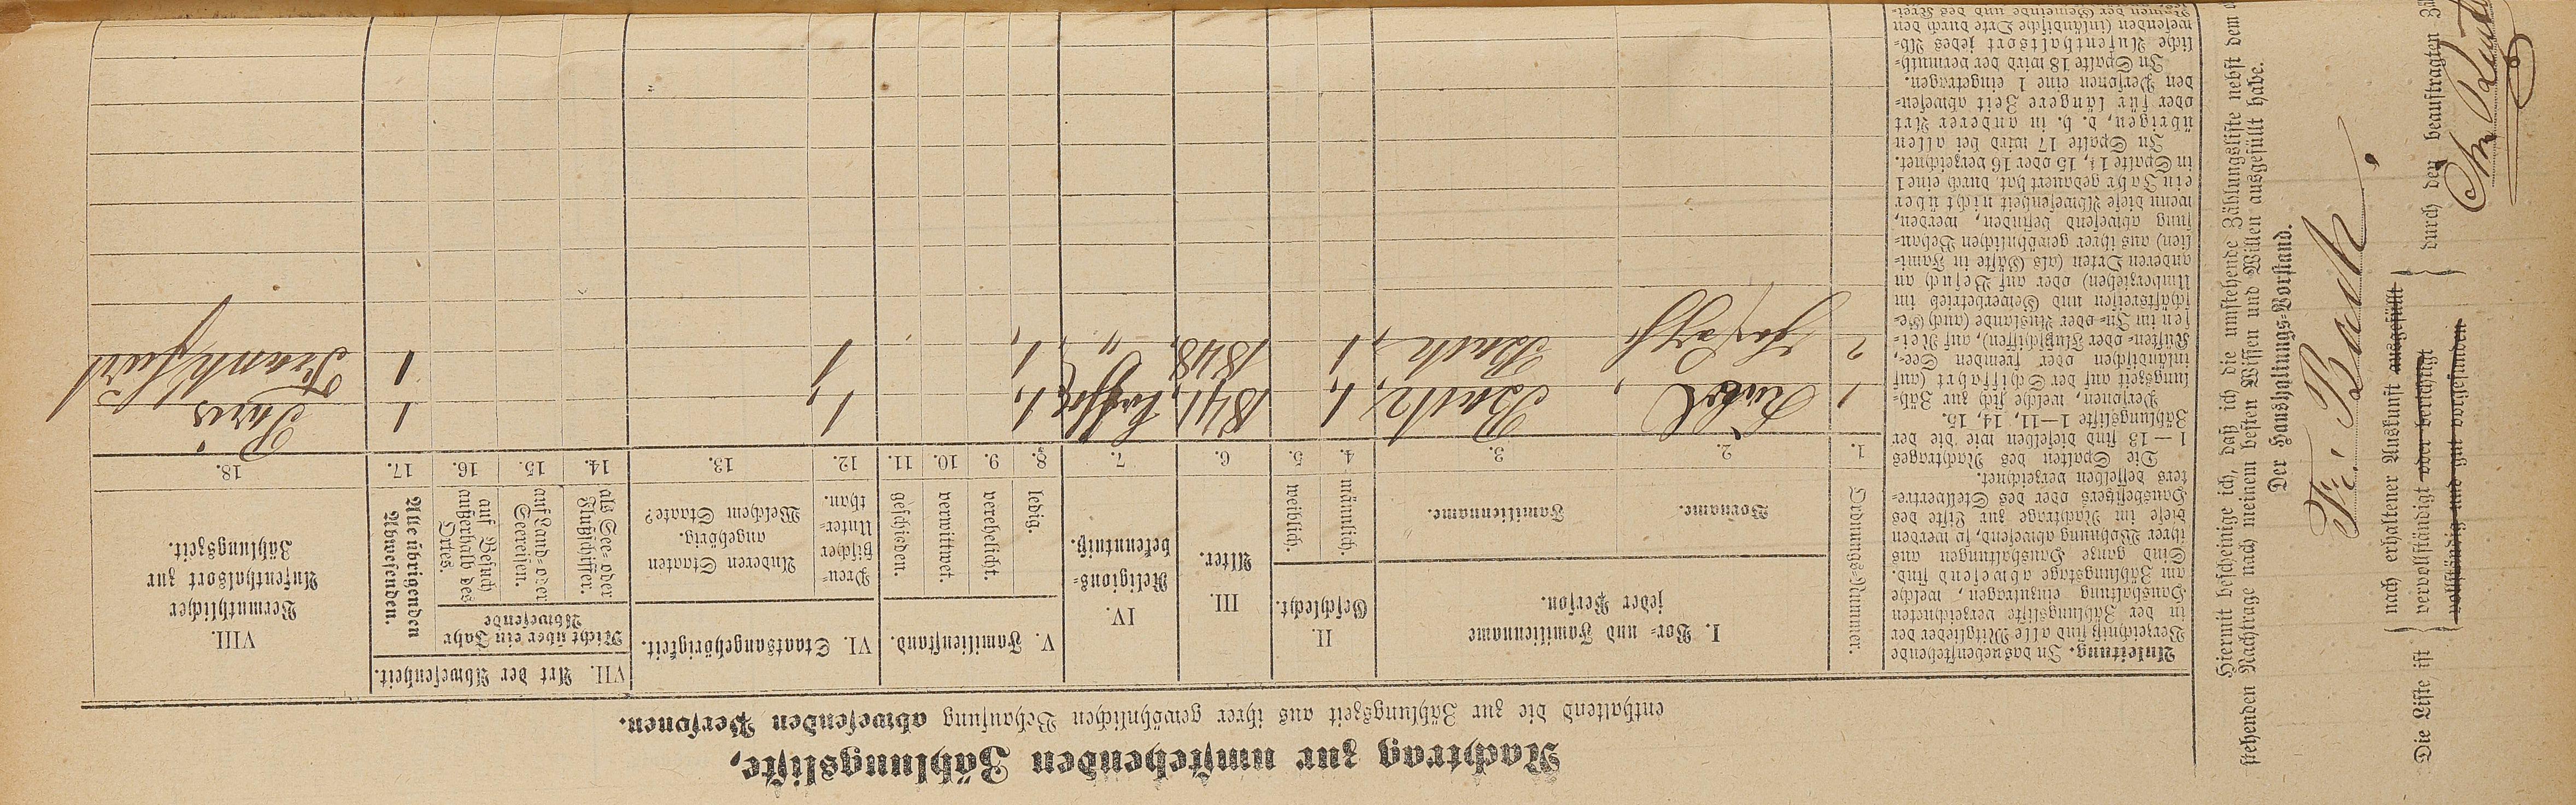 Nachtrag zur umstehenden Zählungsliste,
enthaltend die zur Zählungszeit aus ihrer gewöhnlichen Behausung abwesenden Personen.
Anleitung. In das nebenstehende
Verzeichniß sind alle Mitglieder der
in der Zählungsliste verzeichneten
Haushaltung einzutragen, welche
am Zählungstage abwesend sind.
Sind ganze Haushaltungen aus
ihrer Wohnung abwesend, so werden
diese im Nachtrage zur Liste des
Hausbesitzers oder des Stellvertre-
ters desselben verzeichnet.
Die Spalten des Nachtrages
1—13 sind dieselben wie die der
Zählungsliste 1—11, 14, 15.
Personen, welche sich zur Zäh-
lungszeit auf der Schifffahrt (auf
inländischen oder fremden See-,
Küsten- oder Flußschiffen), auf Rei-
sen im In- oder Auslande (auch Ge-
schäftsreisen und Gewerbetrieb im
Umherziehen) oder auf Besuch an
anderen Orten (als Gäste in Fami-
lien) aus ihrer gewöhnlichen Behau-
sung abwesend befinden, werden,
wenn diese Abwesenheit nicht über
ein Jahr gedauert hat, durch eine 1
in Spalte 14, 15 oder 16 verzeichnet.
In Spalte 17 wird bei allen
übrigen, d. h. in anderer Art
oder für längere Zeit abwesen-
den Personen eine 1 eingetragen.
In Spalte 18 wird der vermuth-
liche Aufenthaltsort jedes Ab-
wesenden (inländische Orte durch den
Namen der Gemeinde und des Krei-
Ordnungs-Nummer.
I. Vor- und Familienname
jeder Person.
Vorname.
Familienname.
II.
Geschlecht.
männlich.
weiblich.
III.
Alter.
IV
Religions-
bekenntniß.
V. Familienstand.
ledig.
verehelicht.
verwittwet.
geschieden.
VI Staatsangehörigkeit.
Preu-
ßischer
Unter-
than.
Anderen Staaten
angehörig.
Welchem Staate?
VII. Art der Abwesenheit.
Nicht über ein Jahr
Abwesende
als See- oder
Flußschiffer.
auf Land- oder
Seereisen.
auf Besuch
außerhalb des
Ortes.
Alle übrigenden
Abwesenden.
VIII.
Vermuthlicher
Aufenthaltsort zur
Zählungszeit.
1. 2. 3. 4. 5. 6. 7. 8. 9. 10. 11. 12. 13. 14. 15. 16. 17. 18.
1 Back, 1, 1841, 1, 1, 1 Paris
2 Joseph Back, 1 1848, " 1, 1 1 Frankfurt
Hiermit bescheinige ich, daß ich die umstehende Zählungsliste nebst dem
stehenden Nachtrage nach meinem besten Wissen und Willen ausgefüllt habe.
Der Haushaltungs-Vorstand.
Fr: Back.
Die Liste ist
nach erhaltener Auskunft ausgefüllt
vervollständigt oder berichtigt
vollständig und gut vorgefunden
durch den beauftragten